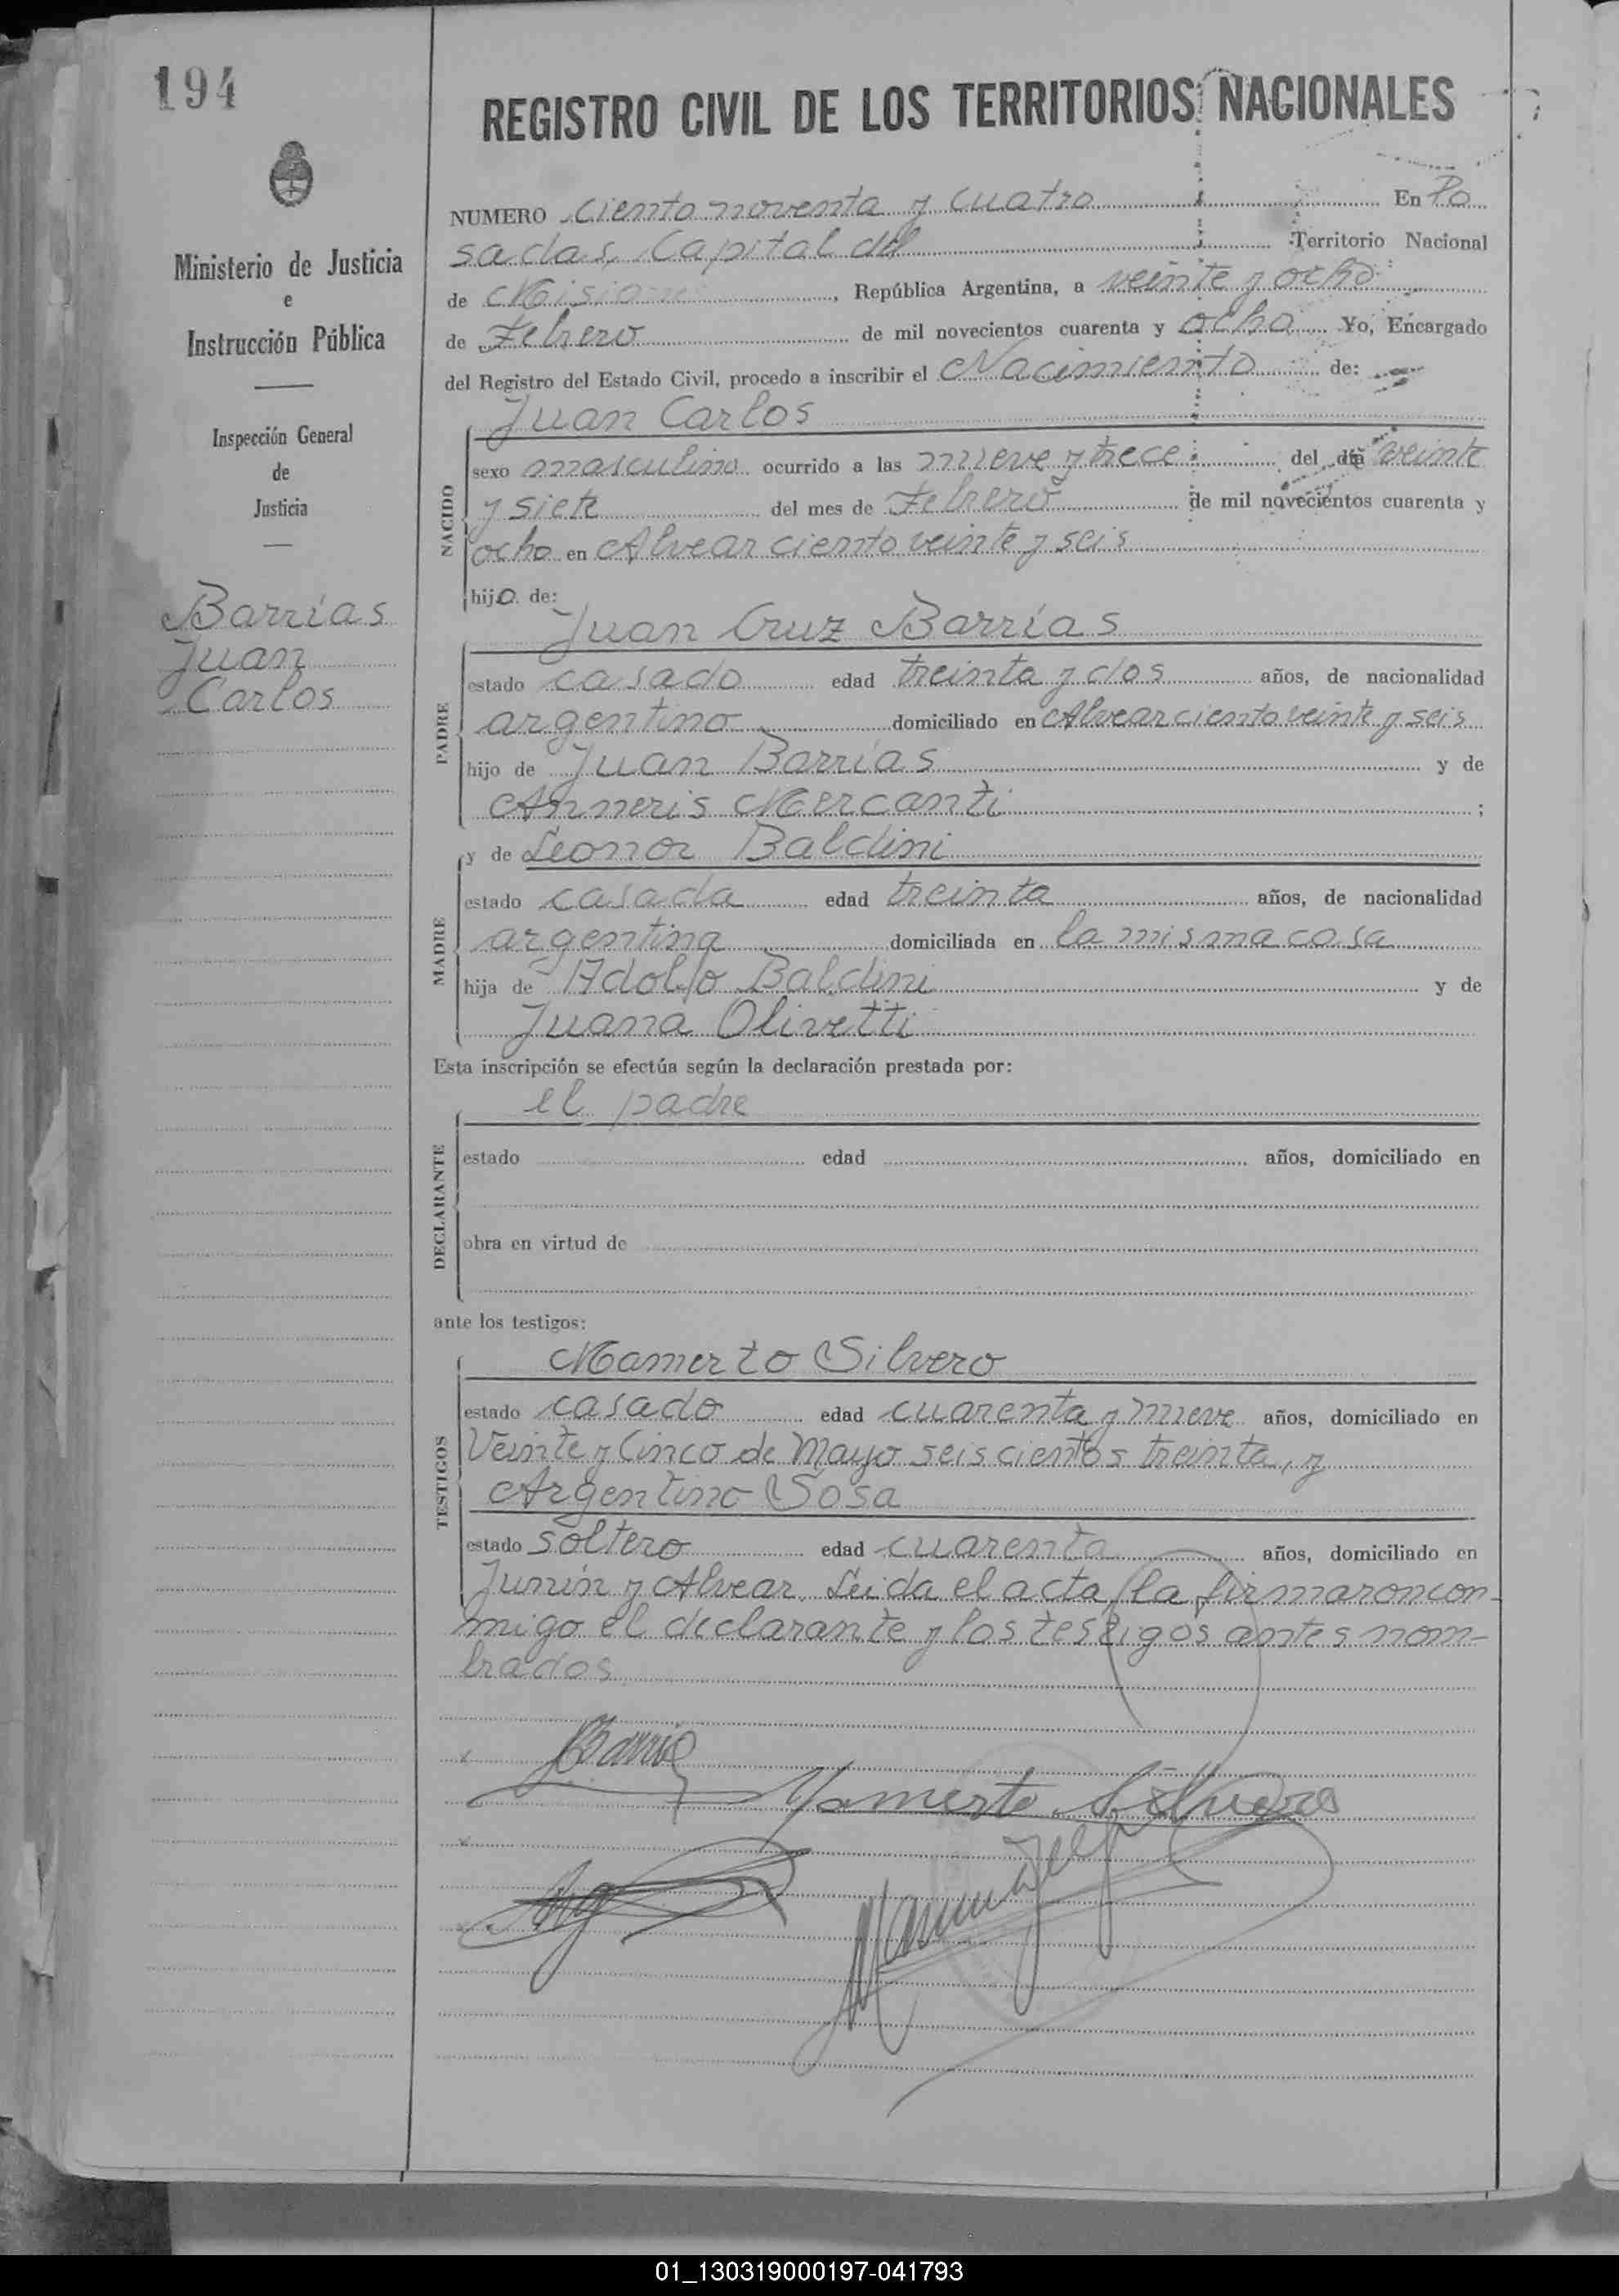 194
REGISTRO CIVIL DE LOS TERRITORIOS NACIONALES
Ministerio de Justicia
e
Instrucción Pública
Inspección General
de
Justicia
Barrías
Juan
Carlos
NUMERO ciento noventa y cuatro En Po
sadas, Capital del Territorio Nacional
de Misiones, República Argentina, a veinte y ocho
de Febrero de mil novecientos cuarenta y ocho Yo, Encargado
del Registro del Estado Civil, procedo a inscribir el Nacimiento de:
Juan Carlos
NACIDO
sexo masculino ocurrido a las nueve y trece del día veinte
y siete del mes de Febrero de mil novecientos cuarenta y
ocho en Alvear ciento veinte y seis
hijo de:
Juan Cruz Barrías
PADRE
estado casado edad treinta y dos años, de nacionalidad
argentino domiciliado en Alvear ciento veinte y seis
hijo de Juan Barrías y de
Anneris Mercanti ;
y de Leonor Baldini
MADRE
estado casada edad treinta años, de nacionalidad
argentina domiciliada en la misma casa
hija de Adolfo Baldini y de
Juana Olivetti
Esta inscripción se efectúa según la declaración prestada por:
el padre
DECLARANTE
estado edad años, domiciliado en
obra en virtud de
ante los testigos:
Mamerto Silvero
TESTIGOS
estado casado edad cuarenta y nueve años, domiciliado en
Veinte y Cinco de Mayo seis cientos treinta, y
Argentino Sosa
estado soltero edad cuarenta años, domiciliado en
Junín y Alvear. Leida el acta, la firmaron con
migo el declarante y los testigos antes nom-
brados
Mamerto Silvero
01_130319000197-041793